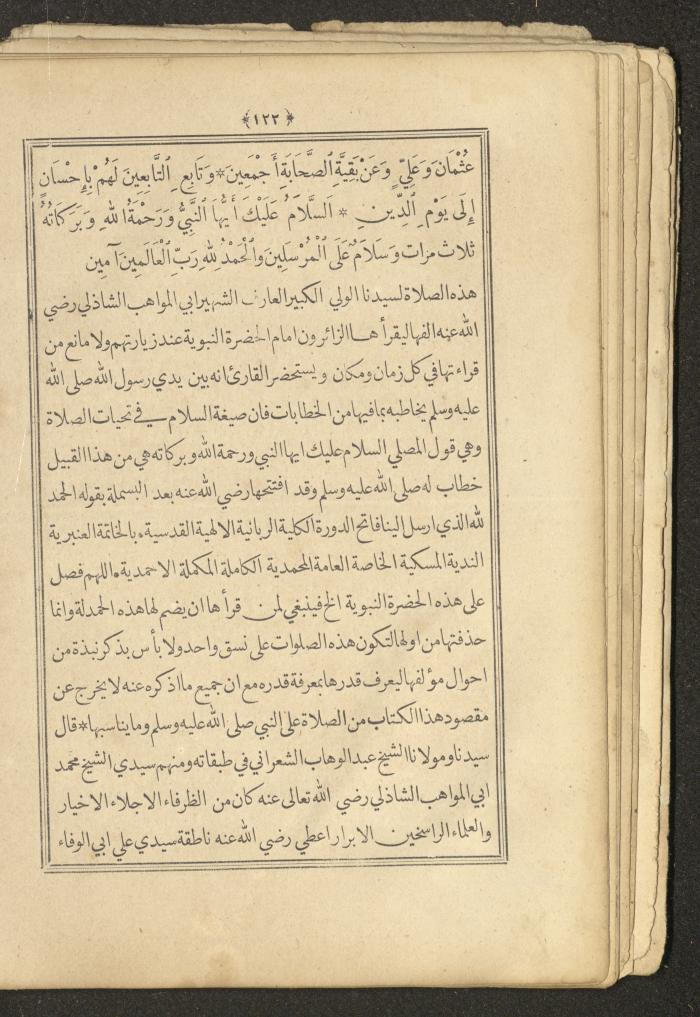 ﴿١٢٢﴾
عُثْمَانَ وَعَلِيٍّ وَعَنْ بَقِيَّةِ الصَّحَابَةِ أَجْمَعِينَ * وَتَابِعِ التَّابِعِينَ لَهُمْ بِإِحْسَانٍ
إِلَى يَوْمِ الدِّينِ * اَلسَّلَامُ عَلَيْكَ أَيُّهَا النَّبِيُّ وَرَحْمَةُ اللهِ وَبَرَكَاتُهُ
ثلاث مرات وَسَلَامٌ عَلَى الْمُرْسَلِينَ وَالْحَمْدُ لِلهِ رَبِّ الْعَالَمِينَ آمِين
هذه الصلاة لسيدنا الولي الكبير العارف الشهير ابي المواهب الشاذلي رضي
الله عنه الفها ليقرأها الزائرون امام الحضرة النبوية عند زيارتهم ولا مانع من
قراءتها في كل زمان ومكان ويستحضر القارئ انه بين يدي رسول الله صلى الله
عليه وسلم يخاطبه بما فيها من الخطابات فان صيغة السلام في تحيات الصلاة
وهي قول المصلي السلام عليك ايها النبي ورحمة الله وبركاته هي من هذا القبيل
خطاب له صلى الله عليه وسلم وقد افتتحها رضي الله عنه بعد البسملة بقوله الحمد
لله الذي ارسل الينا فاتح الدورة الكلية الربانية الالهية القدسية، بالخاتمة العنبرية
الندية المسكية الخاصة العامة المحمدية الكاملة المكملة الاحمدية، اللهم فصل
على هذه الحضرة النبوية الخ فينبغي لمن قرأها ان يضم لها هذه الحمدلة وانما
حذفتها من اولها لتكون هذه الصلوات على نسق واحد ولا بأس بذكر نبذة من
احوال مؤلفها ليعرف قدرها بمعرفة قدره مع ان جميع ما اذكره عنه لا يخرج عن
مقصود هذا الكتاب من الصلاة على النبي صلى الله عليه وسلم وما يناسبها * قال
سيدنا ومولانا الشيخ عبد الوهاب الشعراني في طبقاته ومنهم سيدي الشيخ محمد
ابي المواهب الشاذلي رضي الله تعالى عنه كان من الظرفاء الاجلاء الاخيار
والعلماء الراسخين الابرار اعطي رضي الله عنه ناطقة سيدي علي ابي الوفاء